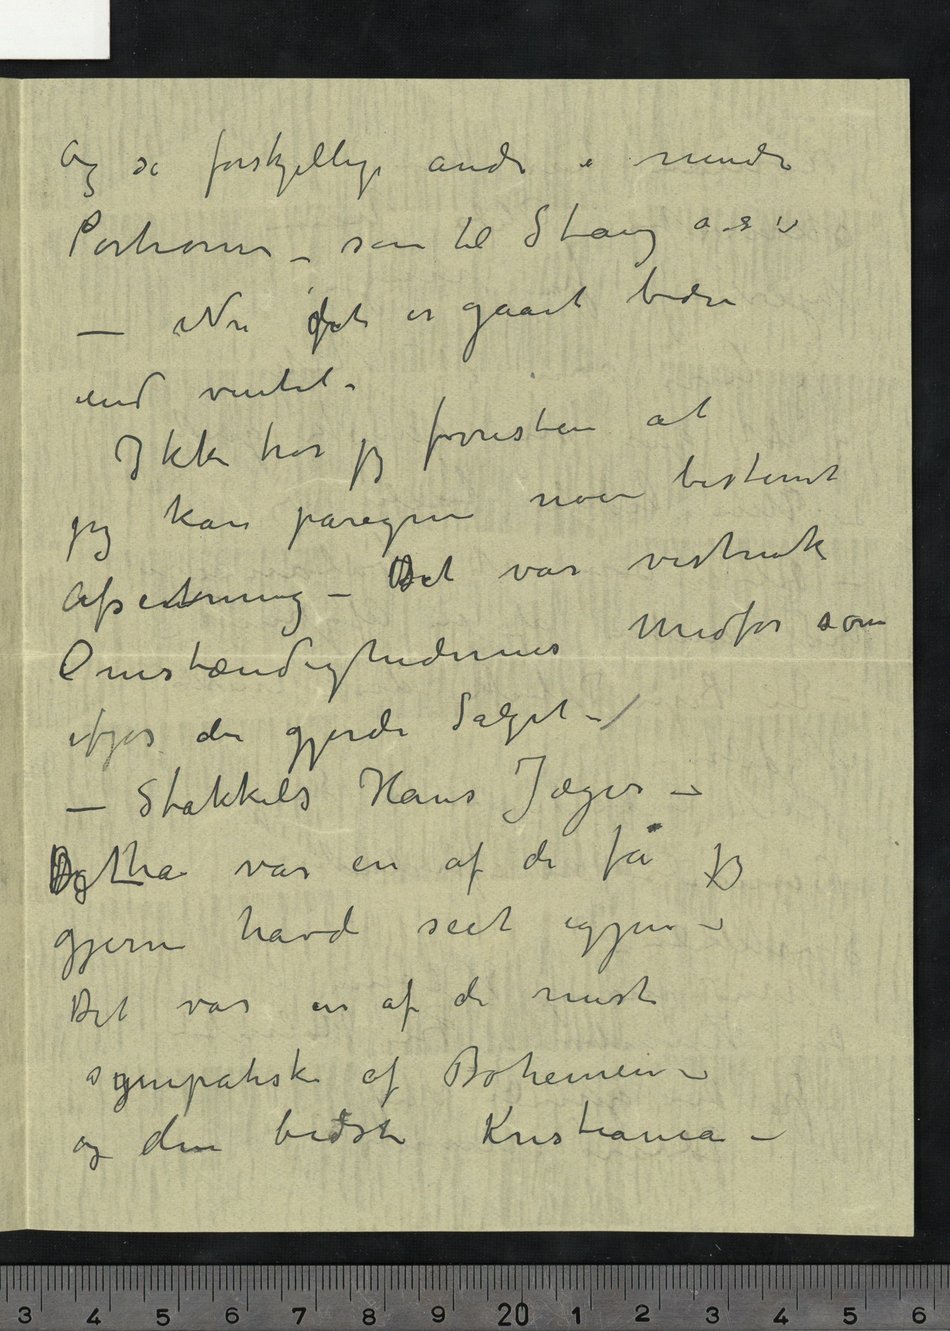 Og så forskjellige andre i mindre
Portioner – som til Stang o. s. v
– Nu det er gaaet bedre
end ventet –
Ikke tror jeg forresten at
jeg kan paregne noen bestemt
Afsetning – Det var vistnok
Omstændighedernes Medfør som
ifjor der gjorde Salget –
– Stakkels Hans Jæger –
var en af de få jeg
gjerne havd seet igjen –
Det var en af de mest
sympatiske af Bohemen –
og den bedste Kristiania –
3 4 5 6 7 8 9 20 1 2 3 4 5 6